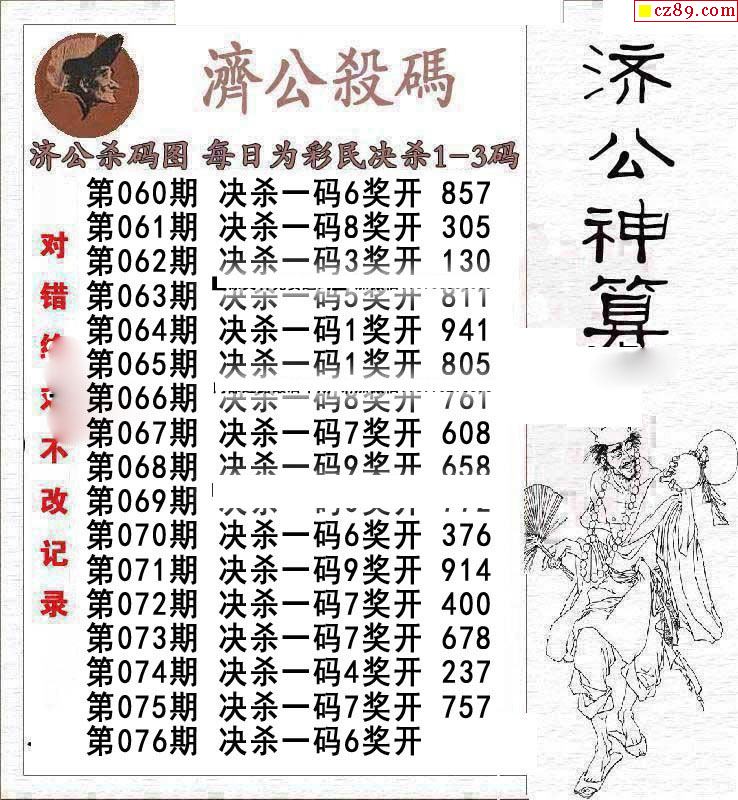 cz89.com
濟公殺碼
济公杀码图 每日为彩民决杀1-3码
第060期 决杀一码6奖开 857
第061期 决杀一码8奖开 305
第062期 决杀一码3奖开 130
第063期 决杀一码5奖开 811
第064期 决杀一码1奖开 941
第065期 决杀一码1奖开 805
第066期 决杀一码8奖开 761
第067期 决杀一码7奖开 608
第068期 决杀一码9奖开 658
第069期
第070期 决杀一码6奖开 376
第071期 决杀一码9奖开 914
第072期 决杀一码7奖开 400
第073期 决杀一码7奖开 678
第074期 决杀一码4奖开 237
第075期 决杀一码7奖开 757
第076期 决杀一码6奖开
对错绝对不改记录
济公神算